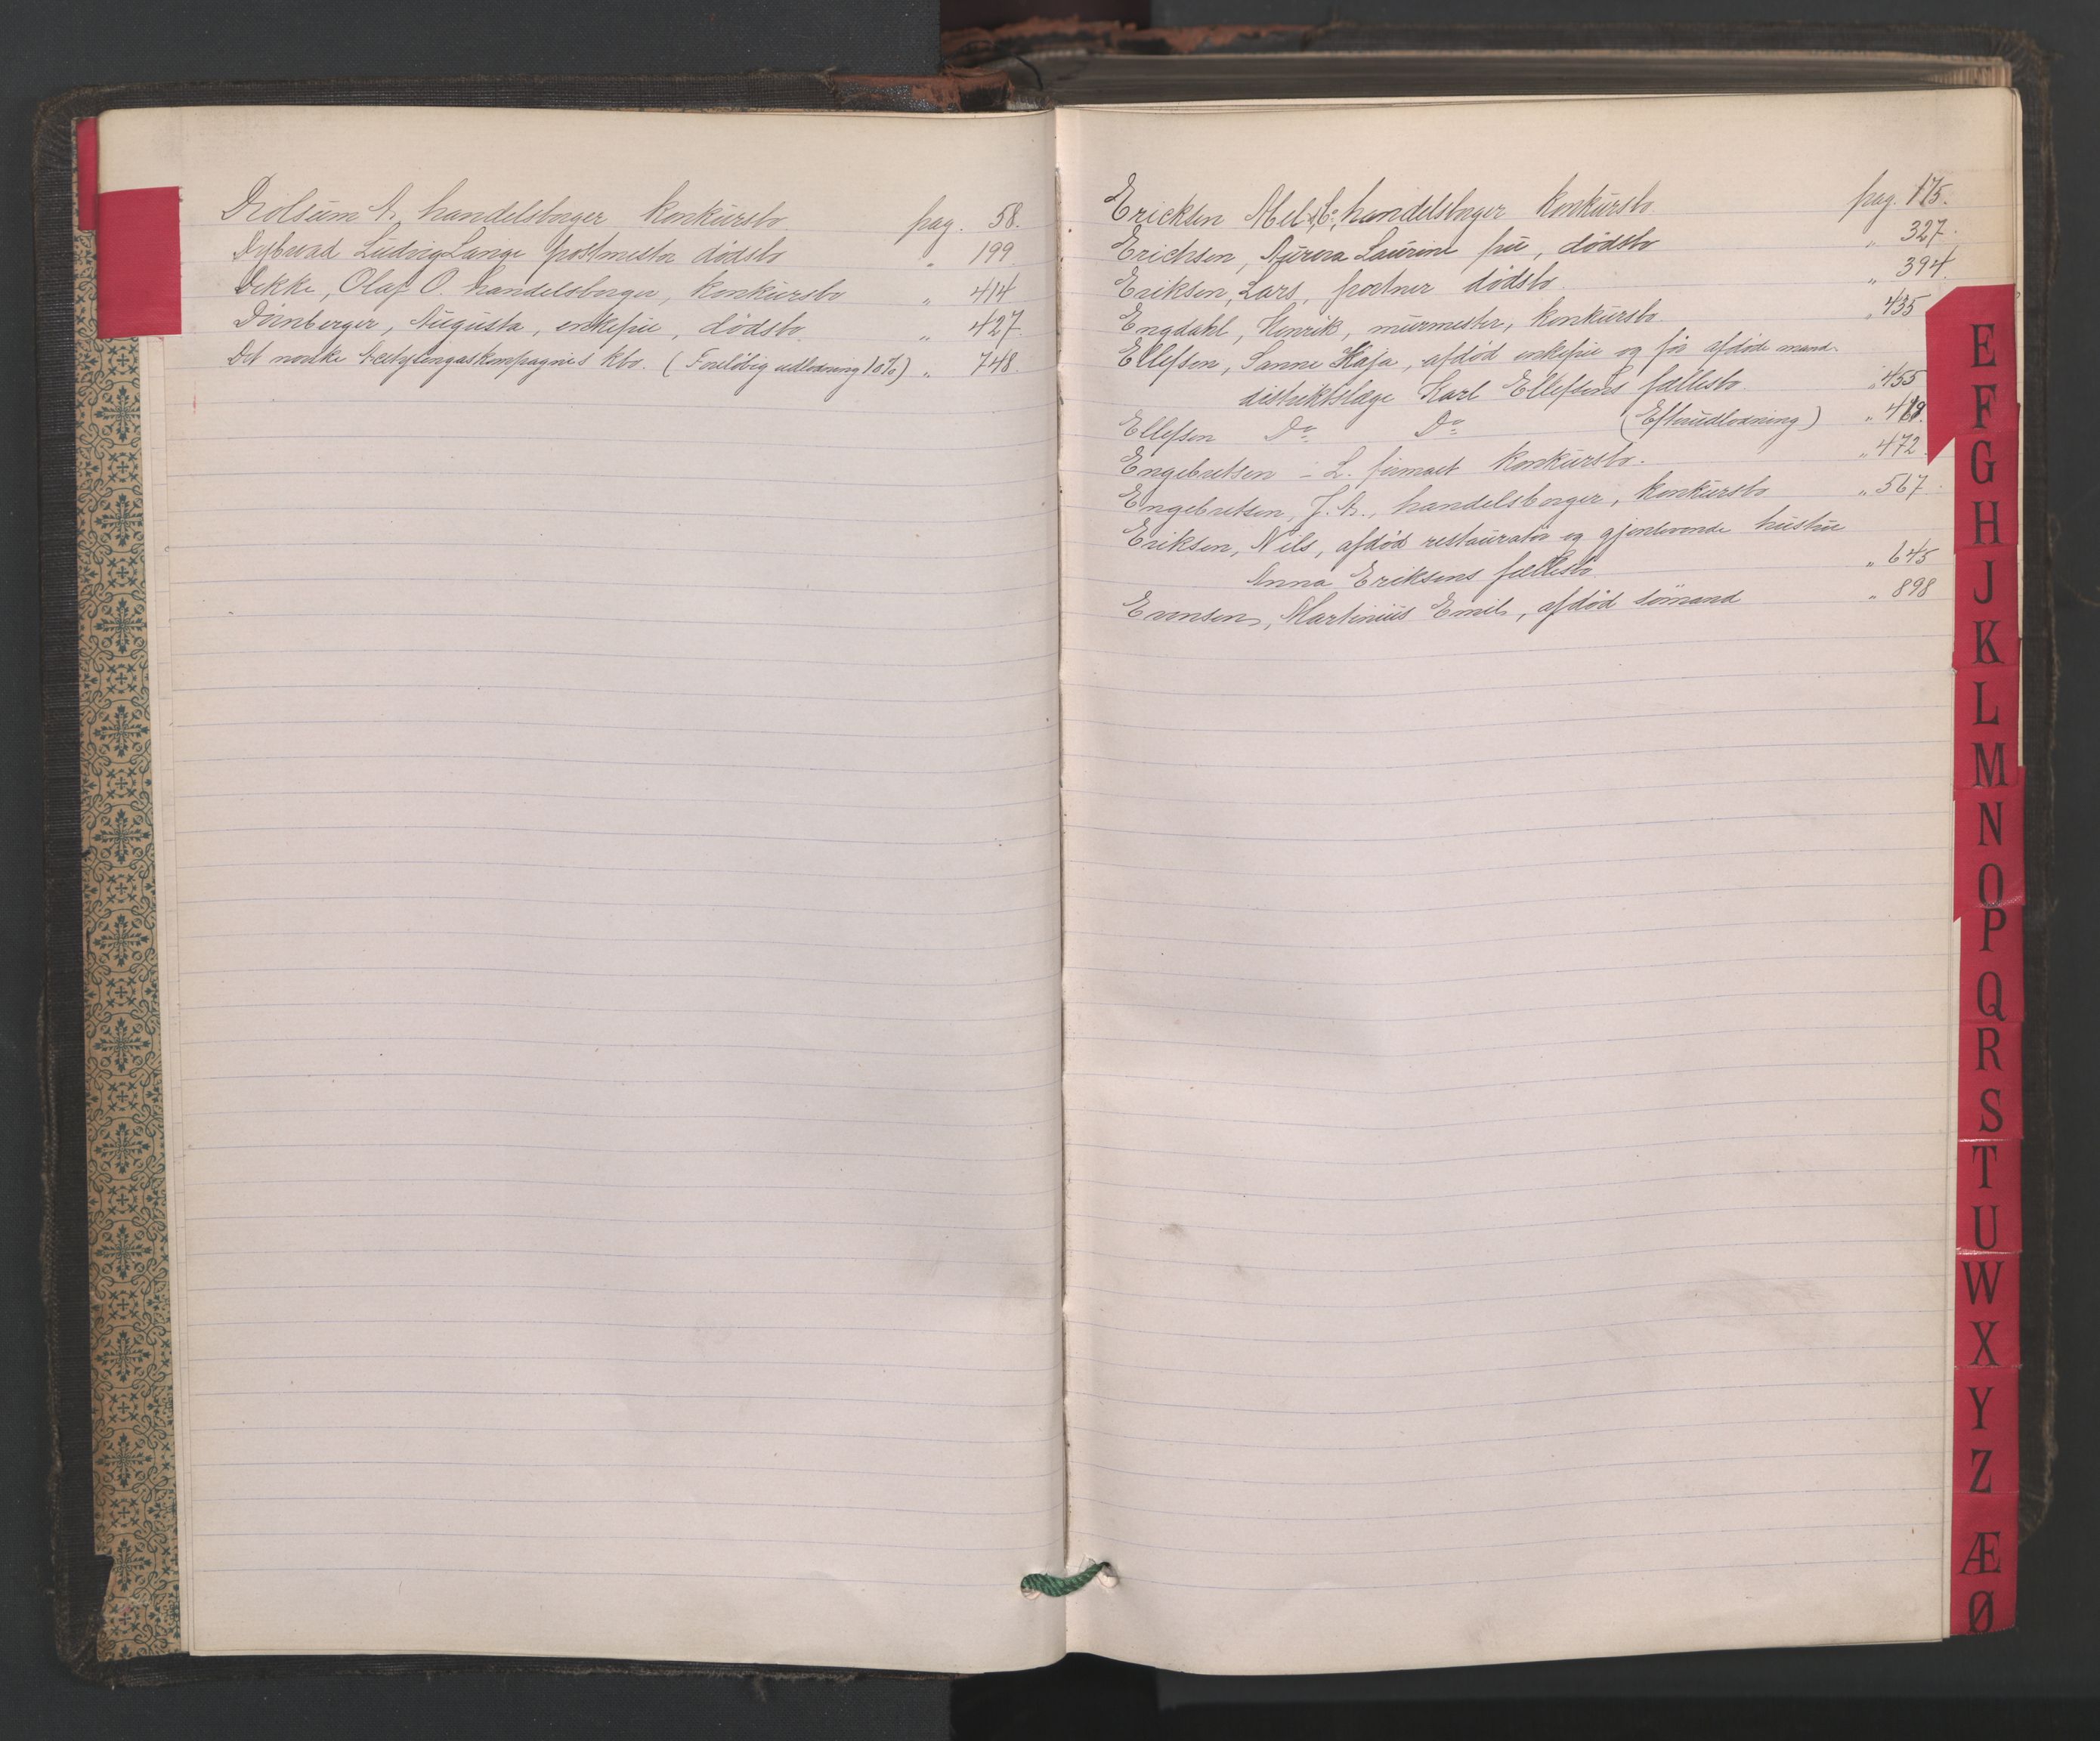 Drolsum A. handelsborger konkursbo pag. 58.
Dybwad Ludvig Lange postmester dødsbo " 199
Dekke, Olaf O. handelsborger, konkursbo " 414
Dürnberger, Augusta, enkefru, dødsbo " 427.
Det norske Acetylengaskompagnies kbo. (Foreløbig udlodning 10%) " 748.
Ericksen Abel & Co, handelsborger konkursbo pag. 175.
Erichsen, Aurora Laurine fru, dødsbo " 327.
Eriksen, Lars, portner dødsbo " 394.
Engdahl, Henrik, murmester, konkursbo " 435
Ellefsen, Sanne Kaja, afdød enkefru og før afdøde mand
distriktslæge Karl Ellefsens fællesbo " 455
Ellefsen Do Do (Efterudlodning) "
Engebretsen - L. firmaet konkursbo. " 472
Engebretsen, J. A., handelsborger, konkursbo " 567
Eriksen, Nils, afdød restauratør og gjenlevende hustru
Anna Eriksens fællesbo " 645
Evensen, Martinius Emil, afdød sömand " 898
E
F
G
H
J
K
L
M
N
O
P
Q
R
S
T
U
W
X
Y
Z
Æ
Ø